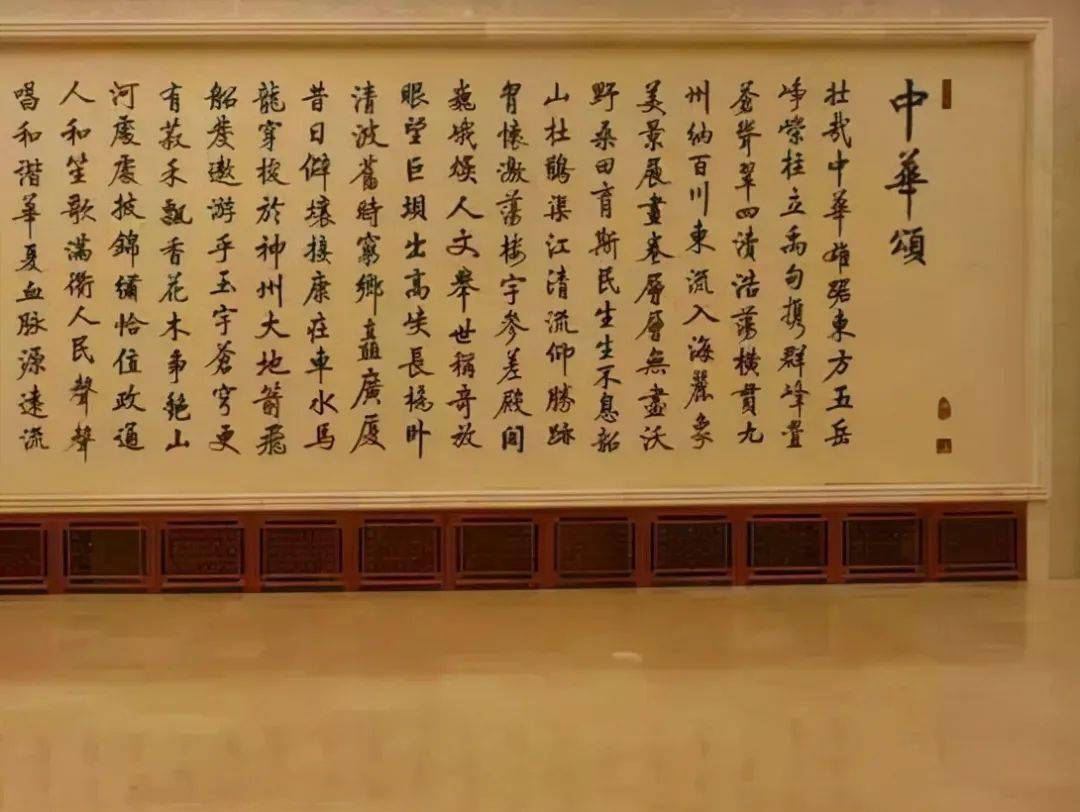 中華頌
壮哉中華雄踞東方五岳
崢嶸柱立禹甸攜群峰疊
蒼聳翠四瀆浩蕩橫貫九
州納百川東流入海麗象
美景展畫卷層層無盡沃
野桑田育斯民生生不息韶
山杜鵑渠江清流仰勝跡
胷懷激蕩樓宇參差殿閣
巍峨煥人文舉世稱奇放
眼望巨壩出高峽長橋卧
清波舊時窮鄉矗廣厦
昔日僻壤接康莊車水馬
龍穿梭於神州大地箭飛
船發遨游乎玉宇蒼穹更
有菽禾飄香花木爭艷山
河處處披錦繡恰值政通
人和笙歌滿衢人民聲聲
唱和諧華夏血脉源遠流